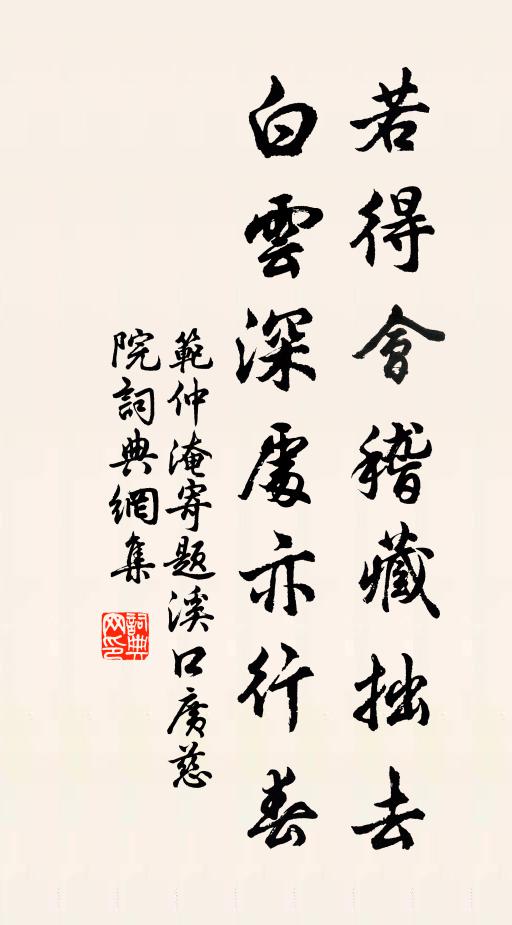 若得會稽藏拙去
白雲深處亦行春
範仲淹寄題溪口廣慈
院詞典網集
詞典网印